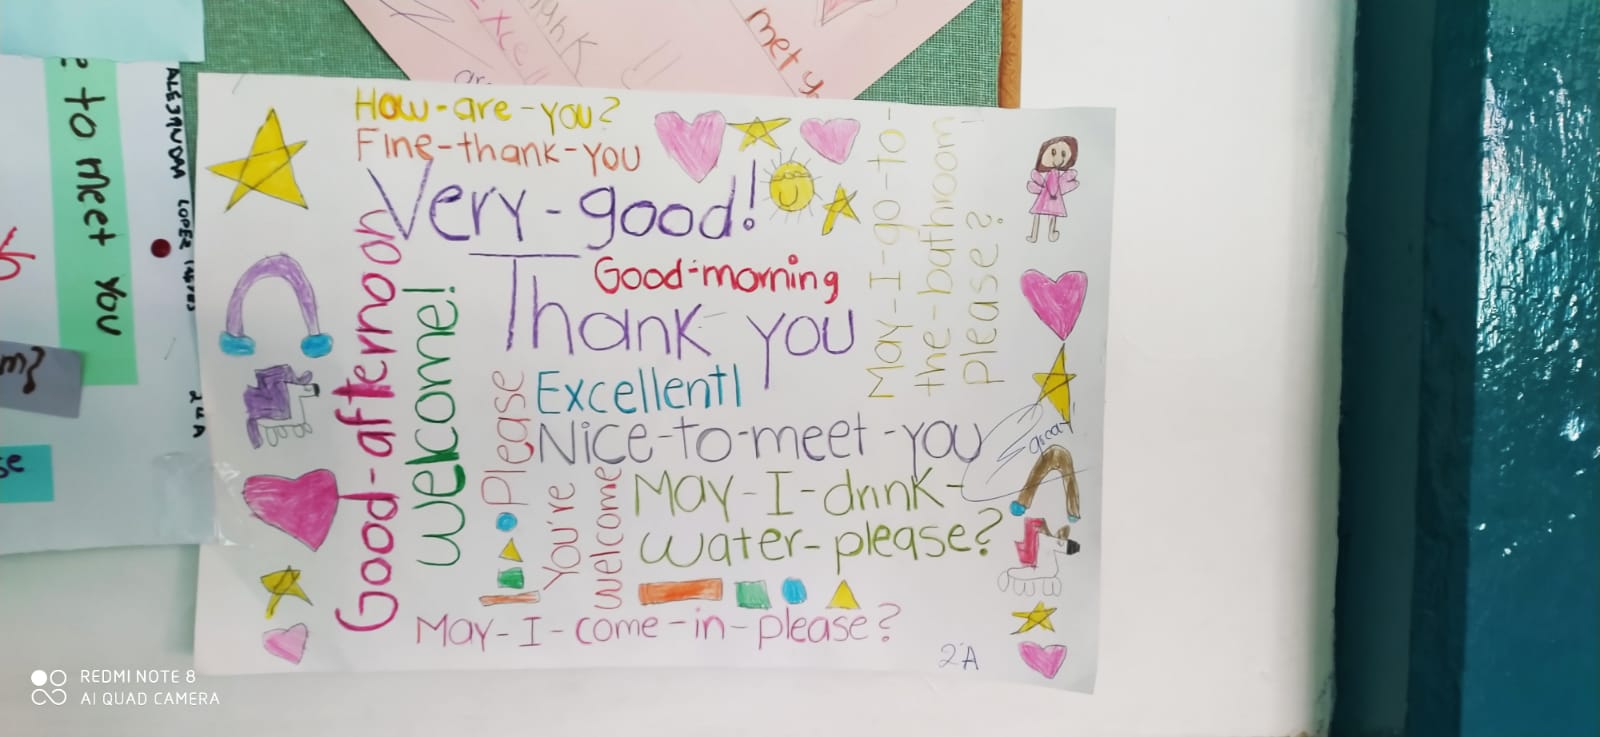 How-are-you?
Fine-thank-you
Very-good!
Good-morning
Thank you
Excellent!
Nice-to-meet-you
May-I-drink-
water-please?
May-I-come-in-please?
Good-afternoon
welcome!
Please
You're
welcome
May-I-go-to-
the-bathroom
please?
Great!
2°A
to meet you
ALEJANDA LOPEZ
2°A
se
Excell
met y
REDMI NOTE 8
AI QUAD CAMERA